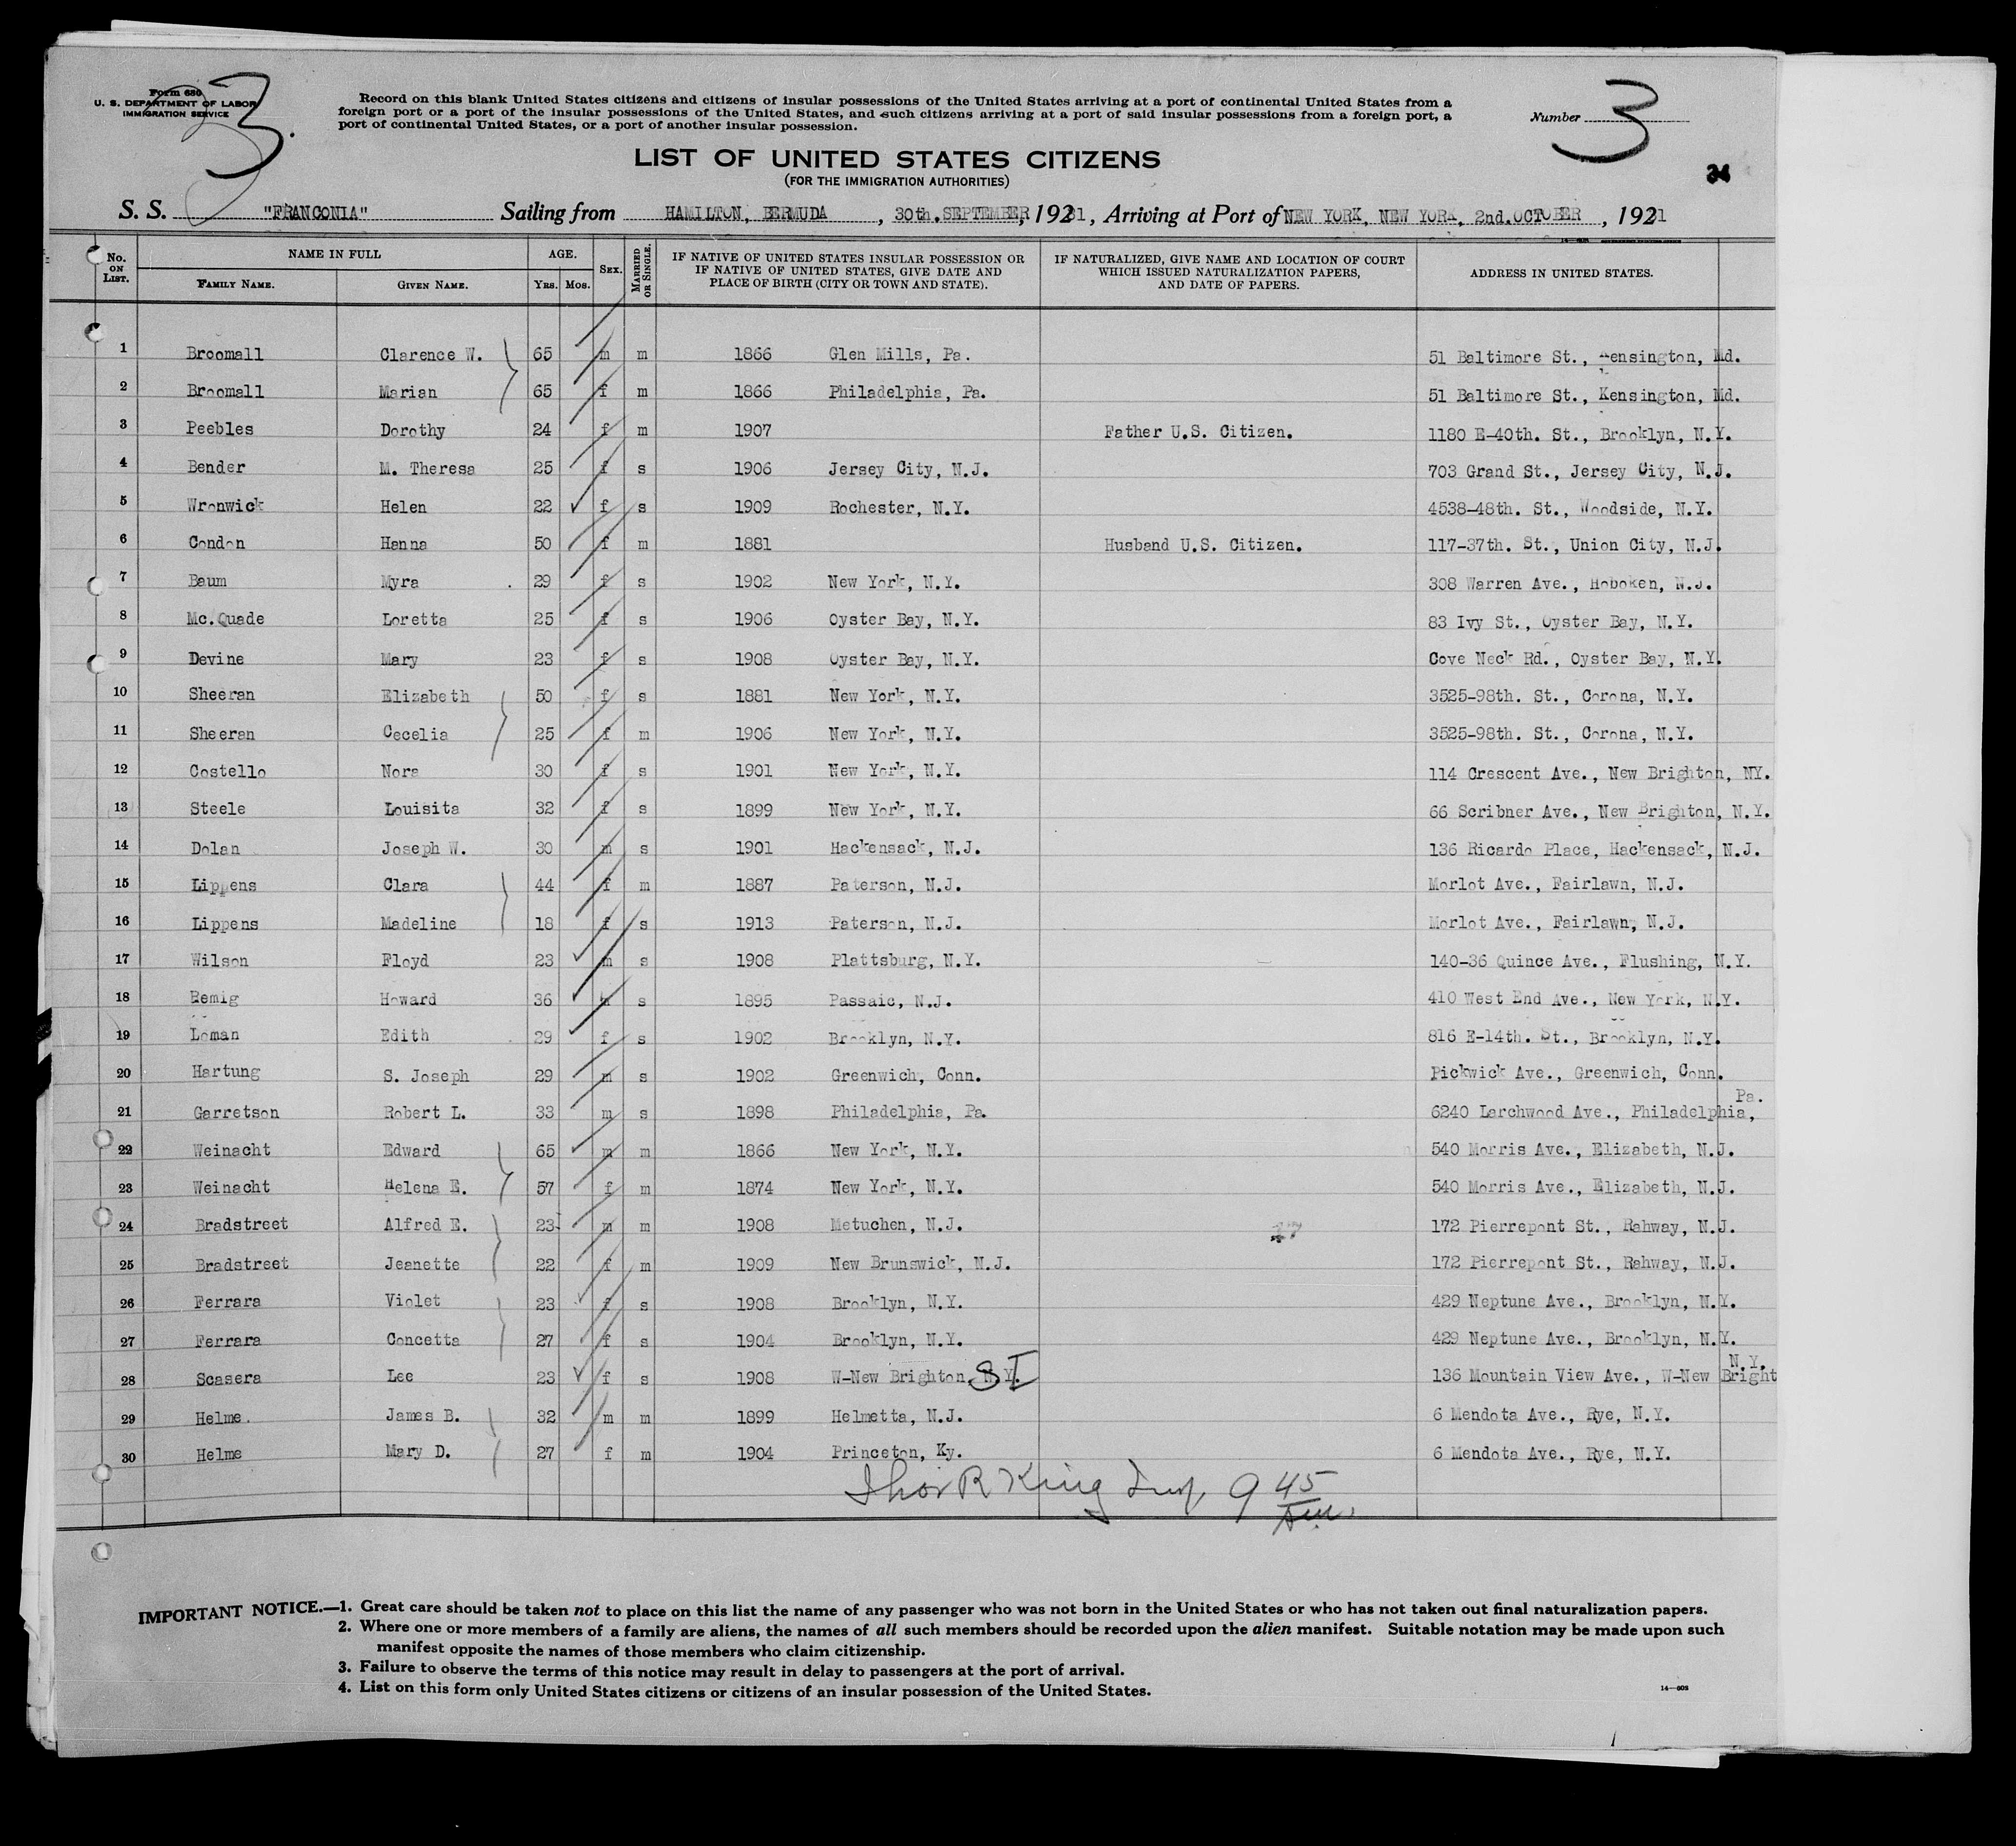 Form 630
U. S. DEPARTMENT OF LABOR
IMMIGRATION SERVICE
3.
Record on this blank United States citizens and citizens of insular possessions of the United States arriving at a port of continental United States from a
foreign port or a port of the insular possessions of the United States, and such citizens arriving at a port of said insular possessions from a foreign port, a
port of continental United States, or a port of another insular possession.
Number 3
LIST OF UNITED STATES CITIZENS
(FOR THE IMMIGRATION AUTHORITIES)
S. S. "FRANCONIA" Sailing from HAMILTON, BERMUDA, 30th. SEPTEMBER, 1931, Arriving at Port of NEW YORK, NEW YORK, 2nd. OCTOBER, 1931
No. ON LIST. NAME IN FULL AGE. SEX. MARRIED OR SINGLE. IF NATIVE OF UNITED STATES INSULAR POSSESSION OR IF NATIVE OF UNITED STATES, GIVE DATE AND PLACE OF BIRTH (CITY OR TOWN AND STATE). IF NATURALIZED, GIVE NAME AND LOCATION OF COURT WHICH ISSUED NATURALIZATION PAPERS, AND DATE OF PAPERS. ADDRESS IN UNITED STATES.
FAMILY NAME. GIVEN NAME. YRS. MOS.
1 Broomall Clarence W. 65 m m 1866 Glen Mills, Pa. 51 Baltimore St., Kensington, Md.
2 Broomall Marian 65 f m 1866 Philadelphia, Pa. 51 Baltimore St., Kensington, Md.
3 Peebles Dorothy 24 f m 1907 Father U.S. Citizen. 1180 E-40th. St., Brooklyn, N.Y.
4 Bender M. Theresa 25 f s 1906 Jersey City, N.J. 703 Grand St., Jersey City, N.J.
5 Wronwick Helen 22 f s 1909 Rochester, N.Y. 4538-48th. St., Woodside, N.Y.
6 Condon Hanna 50 f m 1881 Husband U.S. Citizen. 117-37th. St., Union City, N.J.
7 Baum Myra 29 f s 1902 New York, N.Y. 308 Warren Ave., Hoboken, N.J.
8 Mc.Quade Loretta 25 f s 1906 Oyster Bay, N.Y. 83 Ivy St., Oyster Bay, N.Y.
9 Devine Mary 23 f s 1908 Oyster Bay, N.Y. Cove Neck Rd., Oyster Bay, N.Y.
10 Sheeran Elizabeth 50 f s 1881 New York, N.Y. 3525-98th. St., Corona, N.Y.
11 Sheeran Cecelia 25 f m 1906 New York, N.Y. 3525-98th. St., Corona, N.Y.
12 Costello Nora 30 f s 1901 New York, N.Y. 114 Crescent Ave., New Brighton, NY.
13 Steele Louisita 32 f s 1899 New York, N.Y. 66 Scribner Ave., New Brighton, N.Y.
14 Dolan Joseph W. 30 m s 1901 Hackensack, N.J. 136 Ricardo Place, Hackensack, N.J.
15 Lippens Clara 44 f m 1887 Paterson, N.J. Morlot Ave., Fairlawn, N.J.
16 Lippens Madeline 18 f s 1913 Paterson, N.J. Morlot Ave., Fairlawn, N.J.
17 Wilson Floyd 23 m s 1908 Plattsburg, N.Y. 140-36 Quince Ave., Flushing, N.Y.
18 Remig Howard 36 m s 1895 Passaic, N.J. 410 West End Ave., New York, N.Y.
19 Loman Edith 29 f s 1902 Brooklyn, N.Y. 816 E-14th. St., Brooklyn, N.Y.
20 Hartung S. Joseph 29 m s 1902 Greenwich, Conn. Pickwick Ave., Greenwich, Conn.
21 Garretson Robert L. 33 m s 1898 Philadelphia, Pa. 6240 Larchwood Ave., Philadelphia, Pa.
22 Weinacht Edward 65 m m 1866 New York, N.Y. 540 Morris Ave., Elizabeth, N.J.
23 Weinacht Helena E. 57 f m 1874 New York, N.Y. 540 Morris Ave., Elizabeth, N.J.
24 Bradstreet Alfred E. 23 m m 1908 Metuchen, N.J. 172 Pierrepont St., Rahway, N.J.
25 Bradstreet Jeanette 22 f m 1909 New Brunswick, N.J. 172 Pierrepont St., Rahway, N.J.
26 Ferrara Violet 23 f s 1908 Brooklyn, N.Y. 429 Neptune Ave., Brooklyn, N.Y.
27 Ferrara Concetta 27 f s 1904 Brooklyn, N.Y. 429 Neptune Ave., Brooklyn, N.Y.
28 Scasera Lee 23 f s 1908 W-New Brighton, N.Y. SI 136 Mountain View Ave., W-New Bright N.Y.
29 Helme. James B. 32 m m 1899 Helmetta, N.J. 6 Mendota Ave., Rye, N.Y.
30 Helme Mary D. 27 f m 1904 Princeton, Ky. 6 Mendota Ave., Rye, N.Y.
Thos R King Insp. 9 45 Am.
IMPORTANT NOTICE.—1. Great care should be taken not to place on this list the name of any passenger who was not born in the United States or who has not taken out final naturalization papers.
2. Where one or more members of a family are aliens, the names of all such members should be recorded upon the alien manifest. Suitable notation may be made upon such
manifest opposite the names of those members who claim citizenship.
3. Failure to observe the terms of this notice may result in delay to passengers at the port of arrival.
4. List on this form only United States citizens or citizens of an insular possession of the United States.